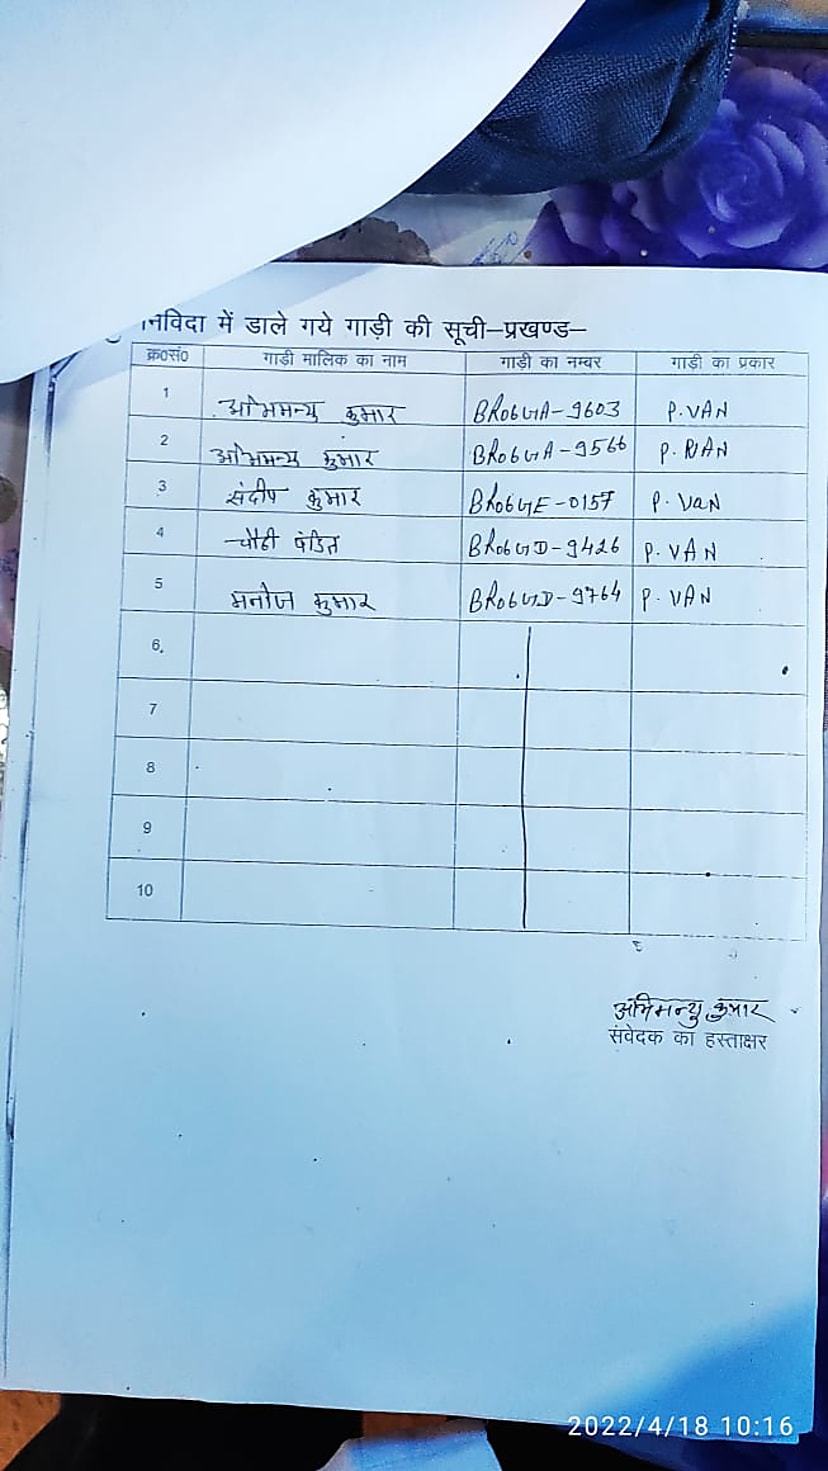 निविदा में डाले गये गाड़ी की सूची–प्रखण्ड–
क्र०सं० गाडी मालिक का नाम गाड़ी का नम्बर गाड़ी का प्रकार
1 अभिमन्यु कुमार BR06GA-9603 P.VAN
2 अभिमन्यु कुमार BR06GA-9566 P.
3 संदीप कुमार BR06GE-0157 P. VaN
4 पंडित BR06GD-9426 P. VAN
5 मनोज कुमार BR06GD-9764 P. VAN
6.
7
8
9
10
अभिमन्यु कुमार
संवेदक का हस्ताक्षर
2022/4/18 10:16